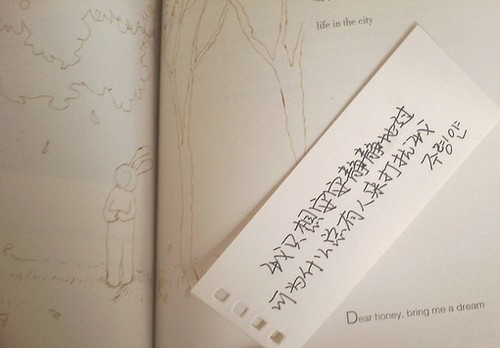 life in the city
我只想安安静静地过
可为什么总有人来打扰我
Dear honey, bring me a dream